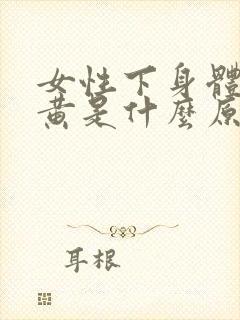 女性下身體
黃是什麼原
耳根